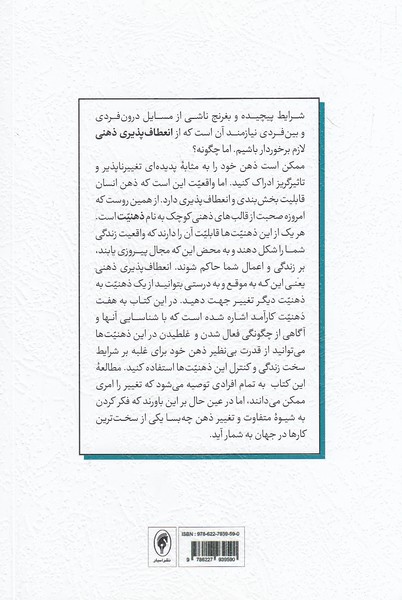 شرایط پیچیده و بغرنج ناشی از مسایل درون‌فردی
و بین‌فردی نیازمند آن است که از انعطاف‌پذیری ذهنی
لازم برخوردار باشیم. اما چگونه؟
ممکن است ذهن خود را به مثابهٔ پدیده‌ای تغییرناپذیر و
تاثیرگریز ادراک کنید. اما واقعیّت این است که ذهن انسان
قابلیت بخش‌بندی و انعطاف‌پذیری دارد. از همین روست که
امروزه صحبت از قالب‌های ذهنی کوچک به نام ذهنیّت است.
هر یک از این ذهنیّت‌ها قابلیّت آن را دارند که واقعیت زندگی
شما را شکل دهند و به محض این که مجال پیروزی یابند،
بر زندگی و اعمال شما حاکم شوند. انعطاف‌پذیری ذهنی
یعنی این که به موقع و به درستی بتوانید از یک ذهنیّت به
ذهنیّت دیگر تغییر جهت دهید. در این کتاب به هفت
ذهنیّت کارآمد اشاره شده است که با شناسایی آنها و
آگاهی از چگونگی فعال شدن و غلطیدن در این ذهنیّت‌ها
می‌توانید از قدرت بی‌نظیر ذهن خود برای غلبه بر شرایط
سخت زندگی و کنترل این ذهنیّت‌ها استفاده کنید. مطالعهٔ
این کتاب به تمام افرادی توصیه می‌شود که تغییر را امری
ممکن می‌دانند، اما در عین حال بر این باورند که فکر کردن
به شیوهٔ متفاوت و تغییر ذهن چه‌بسا یکی از سخت‌ترین
کارها در جهان به شمار آید.
ISBN : 978-622-7938-59-0
9 786227 938590